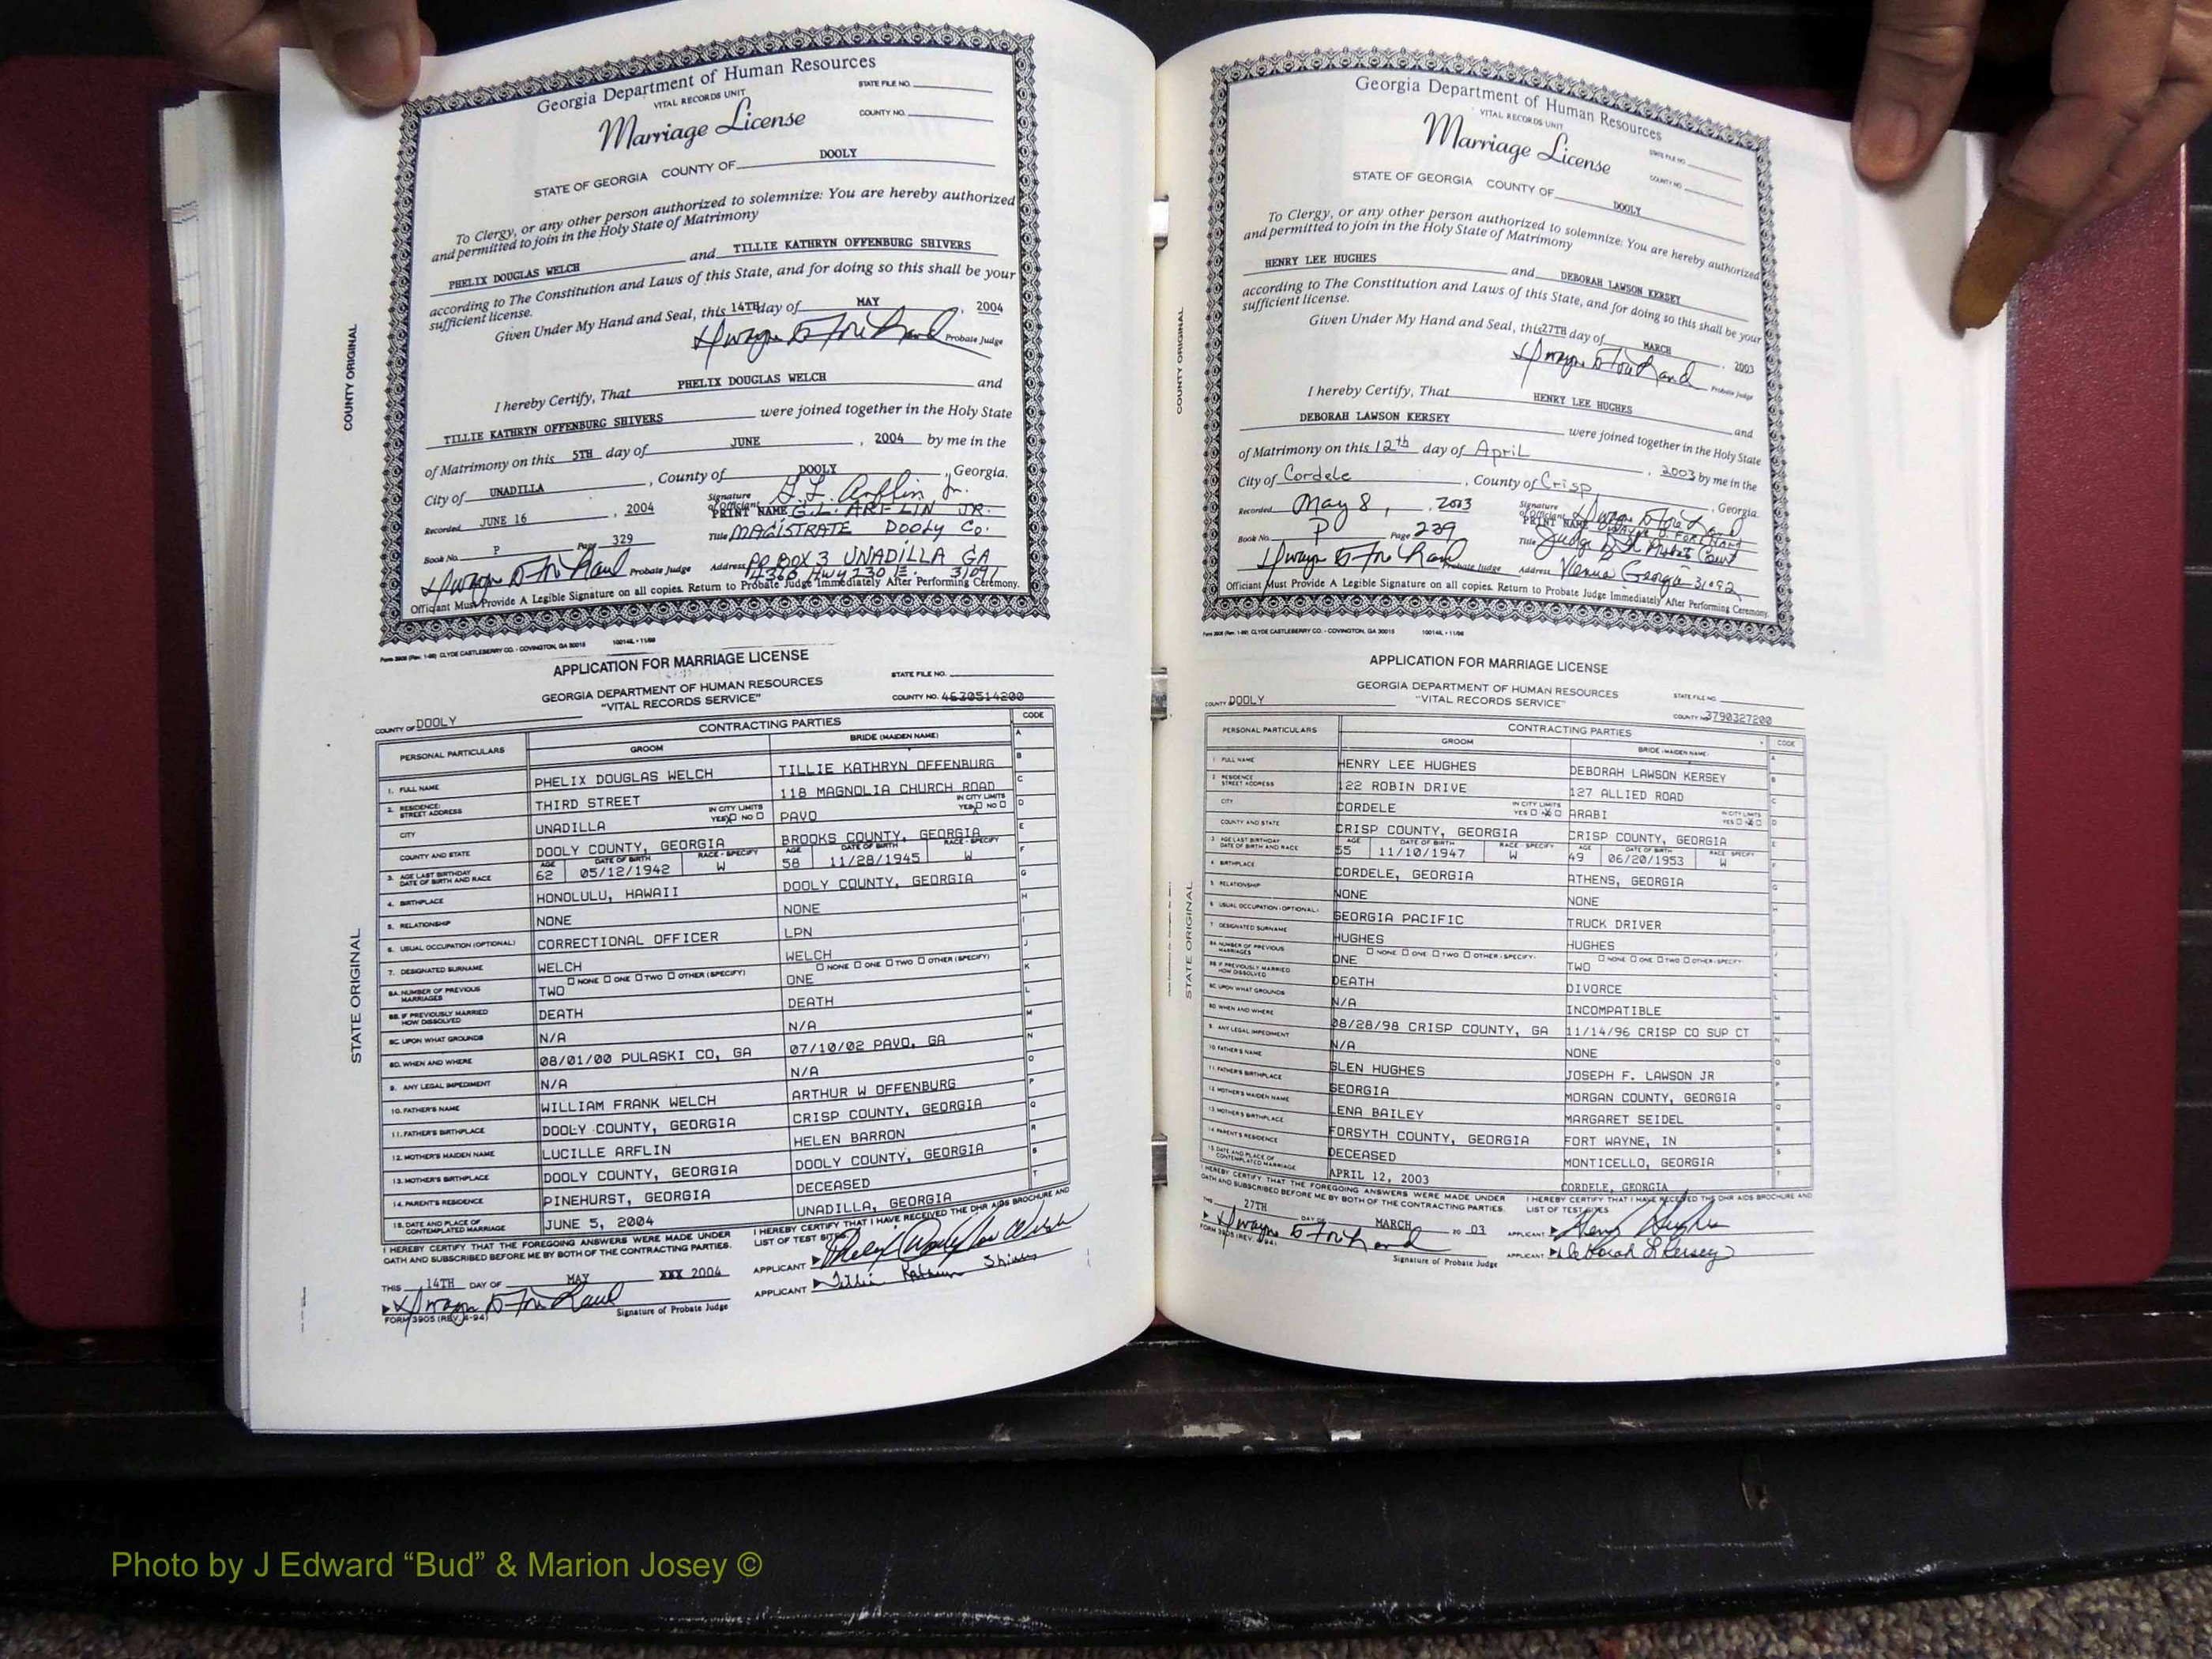 Georgia Department of Human Resources
VITAL RECORDS UNIT
STATE FILE NO.
Marriage License
COUNTY NO.
STATE OF GEORGIA COUNTY OF DOOLY
To Clergy, or any other person authorized to solemnize: You are hereby authorized
and permitted to join in the Holy State of Matrimony
PHELIX DOUGLAS WELCH and TILLIE KATHRYN OFFENBURG SHIVERS
according to The Constitution and Laws of this State, and for doing so this shall be your
sufficient license.
Given Under My Hand and Seal, this 14TH day of MAY, 2004
Probate Judge
I hereby Certify, That PHELIX DOUGLAS WELCH and
TILLIE KATHRYN OFFENBURG SHIVERS were joined together in the Holy State
of Matrimony on this 5TH day of JUNE, 2004 by me in the
City of UNADILLA, County of DOOLY, Georgia.
Signature of Officiant G.L. Arflin, Jr.
Recorded JUNE 16, 2004
PRINT NAME G.L. ARFLIN JR.
Title MAGISTRATE DOOLY CO.
Book No. P Page 329
Probate Judge
Address PO BOX 3 UNADILLA GA
4366 Hwy 230 E. 31091
Officiant Must Provide A Legible Signature on all copies. Return to Probate Judge Immediately After Performing Ceremony.
COUNTY ORIGINAL
Form 3908 (Rev. 1-88) CLYDE CASTLEBERRY CO. - COVINGTON, GA 30015 10014L • 11/98
APPLICATION FOR MARRIAGE LICENSE
GEORGIA DEPARTMENT OF HUMAN RESOURCES
"VITAL RECORDS SERVICE"
STATE FILE NO.
COUNTY NO. 4630514200
COUNTY OF DOOLY
PERSONAL PARTICULARS CONTRACTING PARTIES CODE
GROOM BRIDE (MAIDEN NAME)
1. FULL NAME PHELIX DOUGLAS WELCH TILLIE KATHRYN OFFENBURG
2. RESIDENCE: STREET ADDRESS THIRD STREET 118 MAGNOLIA CHURCH ROAD
CITY UNADILLA IN CITY LIMITS YES NO PAVO IN CITY LIMITS YES NO
COUNTY AND STATE DOOLY COUNTY, GEORGIA BROOKS COUNTY, GEORGIA
3. AGE LAST BIRTHDAY DATE OF BIRTH AND RACE AGE 62 DATE OF BIRTH 05/12/1942 RACE - SPECIFY W AGE 58 DATE OF BIRTH 11/28/1945 RACE - SPECIFY W
4. BIRTHPLACE HONOLULU, HAWAII DOOLY COUNTY, GEORGIA
5. RELATIONSHIP NONE NONE
6. USUAL OCCUPATION (OPTIONAL) CORRECTIONAL OFFICER LPN
7. DESIGNATED SURNAME WELCH WELCH
8A. NUMBER OF PREVIOUS MARRIAGES TWO NONE ONE TWO OTHER (SPECIFY) ONE NONE ONE TWO OTHER (SPECIFY)
8B. IF PREVIOUSLY MARRIED HOW DISSOLVED DEATH DEATH
8C. UPON WHAT GROUNDS N/A N/A
8D. WHEN AND WHERE 08/01/00 PULASKI CO, GA 07/10/02 PAVO, GA
9. ANY LEGAL IMPEDIMENT N/A N/A
10. FATHER'S NAME WILLIAM FRANK WELCH ARTHUR W OFFENBURG
11. FATHER'S BIRTHPLACE DOOLY COUNTY, GEORGIA CRISP COUNTY, GEORGIA
12. MOTHER'S MAIDEN NAME LUCILLE ARFLIN HELEN BARRON
13. MOTHER'S BIRTHPLACE DOOLY COUNTY, GEORGIA DOOLY COUNTY, GEORGIA
14. PARENT'S RESIDENCE PINEHURST, GEORGIA DECEASED
15. DATE AND PLACE OF CONTEMPLATED MARRIAGE JUNE 5, 2004 UNADILLA, GEORGIA
I HEREBY CERTIFY THAT THE FOREGOING ANSWERS WERE MADE UNDER
OATH AND SUBSCRIBED BEFORE ME BY BOTH OF THE CONTRACTING PARTIES.
I HEREBY CERTIFY THAT I HAVE RECEIVED THE DHR AIDS BROCHURE AND
LIST OF TEST SITES.
THIS 14TH DAY OF MAY XXX 2004
APPLICANT
APPLICANT Tillie Kathryn Shivers
Signature of Probate Judge
FORM 3905 (REV. 4-94)
STATE ORIGINAL
Georgia Department of Human Resources
VITAL RECORDS UNIT
Marriage License
STATE FILE NO.
COUNTY NO.
STATE OF GEORGIA COUNTY OF DOOLY
To Clergy, or any other person authorized to solemnize: You are hereby authorized
and permitted to join in the Holy State of Matrimony
HENRY LEE HUGHES and DEBORAH LAWSON KERSEY
according to The Constitution and Laws of this State, and for doing so this shall be your
sufficient license.
Given Under My Hand and Seal, this 27TH day of MARCH, 2003
Probate Judge
I hereby Certify, That HENRY LEE HUGHES and
DEBORAH LAWSON KERSEY were joined together in the Holy State
of Matrimony on this 12th day of April, 2003 by me in the
City of Cordele, County of Crisp, Georgia
Recorded May 8, 2003
Signature of Officiant
PRINT NAME
Book No. P Page 239
Title Judge of Probate Court
Probate Judge
Address Vienna Georgia 31092
Officiant Must Provide A Legible Signature on all copies. Return to Probate Judge Immediately After Performing Ceremony.
COUNTY ORIGINAL
Form 3908 (Rev. 1-88) CLYDE CASTLEBERRY CO. - COVINGTON, GA 30015 10014L • 11/98
APPLICATION FOR MARRIAGE LICENSE
GEORGIA DEPARTMENT OF HUMAN RESOURCES
"VITAL RECORDS SERVICE"
STATE FILE NO.
COUNTY NO. 3790327200
COUNTY DOOLY
PERSONAL PARTICULARS CONTRACTING PARTIES CODE
GROOM BRIDE (MAIDEN NAME)
1. FULL NAME HENRY LEE HUGHES DEBORAH LAWSON KERSEY
2. RESIDENCE STREET ADDRESS 122 ROBIN DRIVE 127 ALLIED ROAD
CITY CORDELE IN CITY LIMITS YES NO ARABI IN CITY LIMITS YES NO
COUNTY AND STATE CRISP COUNTY, GEORGIA CRISP COUNTY, GEORGIA
3. AGE LAST BIRTHDAY DATE OF BIRTH AND RACE AGE 55 DATE OF BIRTH 11/10/1947 RACE - SPECIFY W AGE 49 DATE OF BIRTH 06/20/1953 RACE - SPECIFY W
4. BIRTHPLACE CORDELE, GEORGIA ATHENS, GEORGIA
5. RELATIONSHIP NONE NONE
6. USUAL OCCUPATION (OPTIONAL) GEORGIA PACIFIC TRUCK DRIVER
7. DESIGNATED SURNAME HUGHES HUGHES
8A. NUMBER OF PREVIOUS MARRIAGES ONE NONE ONE TWO OTHER (SPECIFY) TWO NONE ONE TWO OTHER (SPECIFY)
8B. IF PREVIOUSLY MARRIED HOW DISSOLVED DEATH DIVORCE
8C. UPON WHAT GROUNDS N/A INCOMPATIBLE
8D. WHEN AND WHERE 08/28/98 CRISP COUNTY, GA 11/14/96 CRISP CO SUP CT
9. ANY LEGAL IMPEDIMENT N/A NONE
10. FATHER'S NAME GLEN HUGHES JOSEPH F. LAWSON JR
11. FATHER'S BIRTHPLACE GEORGIA MORGAN COUNTY, GEORGIA
12. MOTHER'S MAIDEN NAME LENA BAILEY MARGARET SEIDEL
13. MOTHER'S BIRTHPLACE FORSYTH COUNTY, GEORGIA FORT WAYNE, IN
14. PARENT'S RESIDENCE DECEASED MONTICELLO, GEORGIA
15. DATE AND PLACE OF CONTEMPLATED MARRIAGE APRIL 12, 2003 CORDELE, GEORGIA
I HEREBY CERTIFY THAT THE FOREGOING ANSWERS WERE MADE UNDER
OATH AND SUBSCRIBED BEFORE ME BY BOTH OF THE CONTRACTING PARTIES.
I HEREBY CERTIFY THAT I HAVE RECEIVED THE DHR AIDS BROCHURE AND
LIST OF TEST SITES.
THIS 27TH DAY OF MARCH 20 03
APPLICANT Henry Hughes
APPLICANT Deborah L Kersey
Signature of Probate Judge
FORM 3905 (REV. 4-94)
STATE ORIGINAL
Photo by J Edward “Bud” & Marion Josey ©